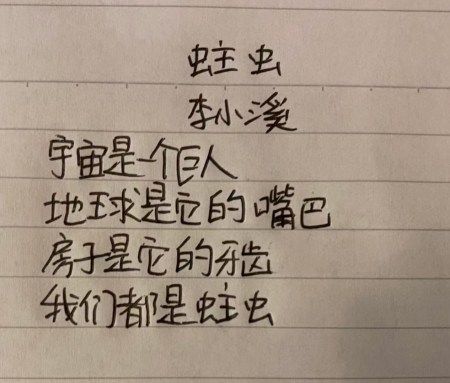 蛀虫
李小溪
宇宙是一个巨人
地球是它的嘴巴
房子是它的牙齿
我们都是蛀虫